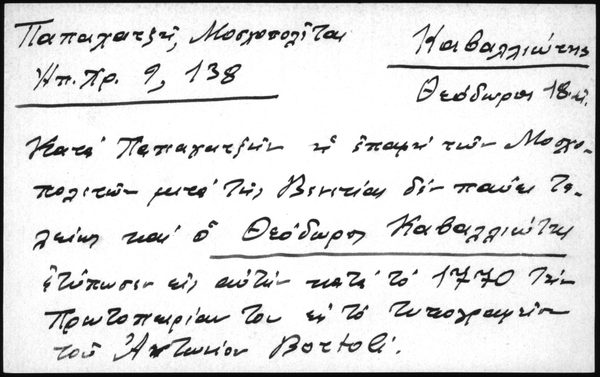 Παπαχατζῆ, Μοσχοπολῖται
Ἠπ. Χρ. 9, 138
Καβαλλιώτης
Θεόδωρος 18 αἰ.
Κατὰ Παπαχατζῆν ἡ ἐπαφὴ τῶν Μοσχο-
πολιτῶν μετὰ τῆς Βενετίας δὲν παύει τε-
λείως καὶ ὁ Θεόδωρος Καβαλλιώτης
ἐτύπωσεν εἰς αὐτὴν κατὰ τὸ 1770 τὴν
Πρωτοπειρίαν του εἰς τὸ τυπογραφεῖον
τοῦ Ἀντωνίου Bortoli.